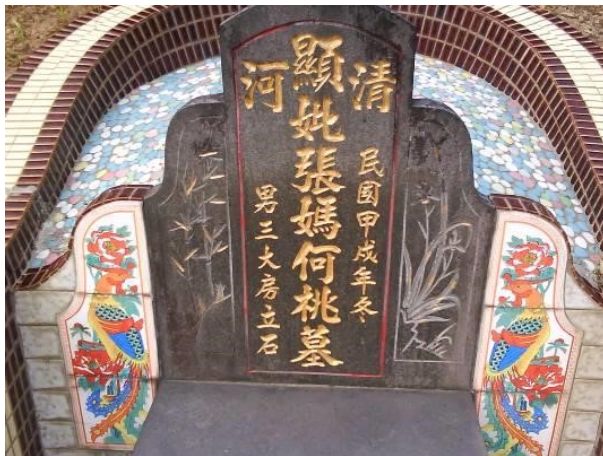 清河
民國甲戌年冬
顯妣張媽何桃墓
男三大房立石